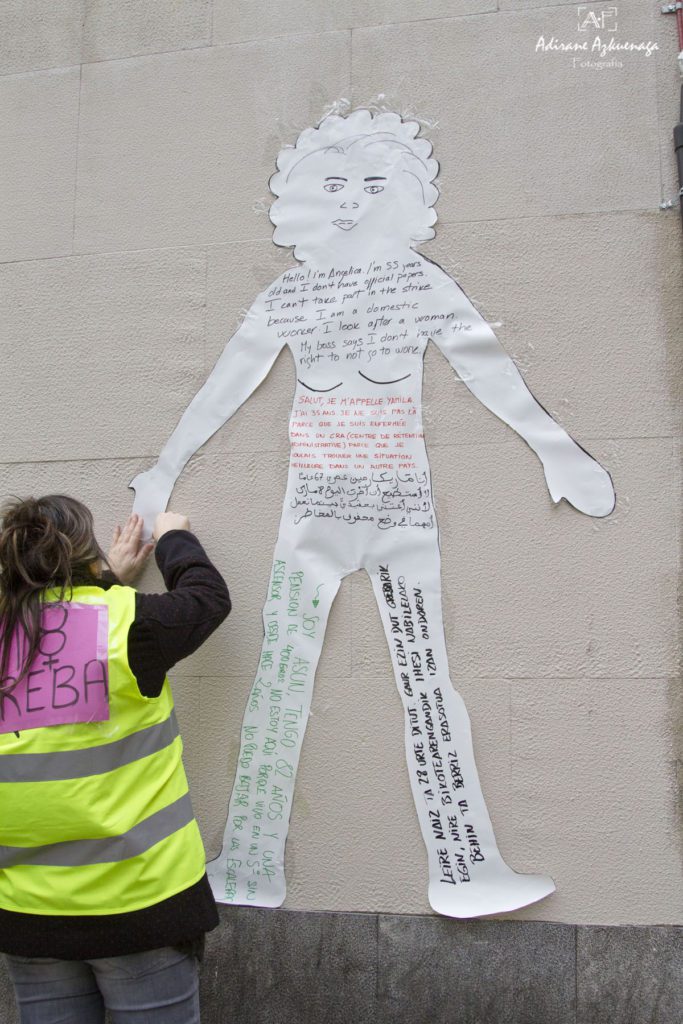 AF
Adirane Azkuenaga
Fotografía
Hello! I'm Angelica. I'm 55 years
old and I don't have official papers.
I can't take part in the strike
because I am a domestic
worker I look after a woman
My boss says I don't have the
right to not go to work.
SALUT, JE M'APPELLE YAMILA.
J'AI 35 ANS. JE NE SUIS PAS LÀ
PARCE QUE JE SUIS ENFERMÉE
DANS UN CRA (CENTRE DE RETENTION
ADMINISTRATIVE) PARCE QUE JE
VOULAIS TROUVER UNE SITUATION
MEILLEURE DANS UN AUTRE PAYS.
أنا عمري 67 عاما
لا أستطيع أن اليوم 8 مارس
لأنني
في وضع محفوف بالمخاطر
SOY ASUN, TENGO 82 AÑOS Y UNA
PENSION DE 400 EUROS NO ESTOY AQUÍ PORQUE VIVO EN UN 5º SIN
ASCENSOR Y DESDE HACE 2 AÑOS NO PUEDO BAJAR POR LAS ESCALERAS
LEIRE NAIZ TA 28 URTE DITUT. GAUR EZIN DUT GREBARIK
EGIN, NIRE BIKOTEARENGANDIK IHESI NABILELAKO
BEHIN TA BERRIZ ERASOTUA IZAN ONDOREN.
M8
GREBA